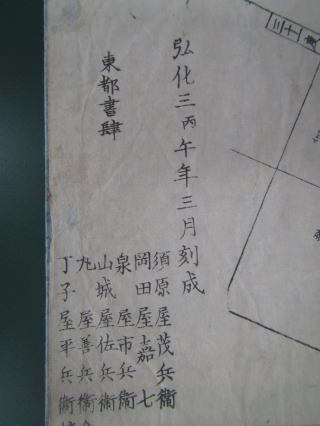 弘化三丙午年三月刻成
東都書肆
須原屋茂兵衛
岡田屋嘉七
泉屋市兵衛
山城屋佐兵衛
丸屋善兵衛
丁子屋平兵衛